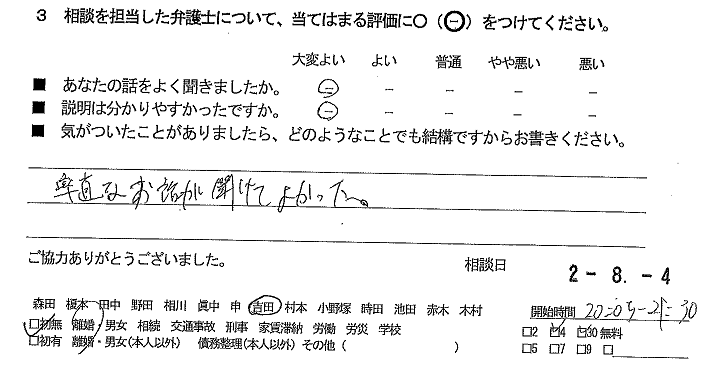 3 相談を担当した弁護士について、当てはまる評価に○（㊀）をつけてください。
大変よい よい 普通 やや悪い 悪い
■ あなたの話をよく聞きましたか。 － － － － －
■ 説明は分かりやすかったですか。 － － － － －
■ 気がついたことがありましたら、どのようなことでも結構ですからお書きください。
率直なお話が聞けてよかった。
ご協力ありがとうございました。 相談日 2-8.-4
森田 榎本 田中 野田 相川 眞中 申 吉田 村本 小野塚 時田 池田 赤木 木村 開始時間 20:05-21:30
□初無 離婚・男女 相続 交通事故 刑事 家賃滞納 労働 労災 学校 □2 □4 □30 無料
□初有 離婚・男女(本人以外) 債務整理(本人以外) その他 ( ) □5 □7 □9 □